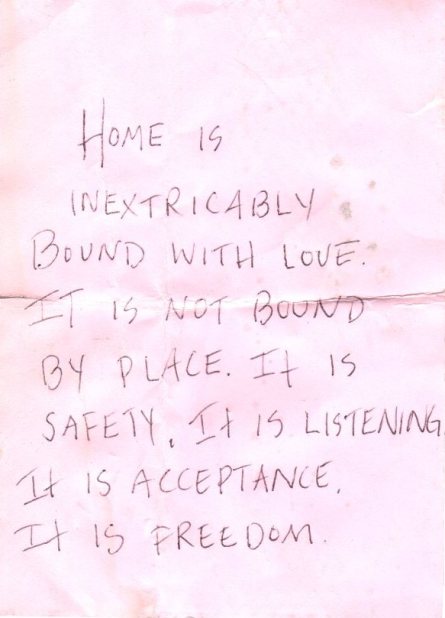 Home is
inextricably
Bound with love.
It is not Bound
by place. It is
safety. It is listening.
It is acceptance.
It is freedom.